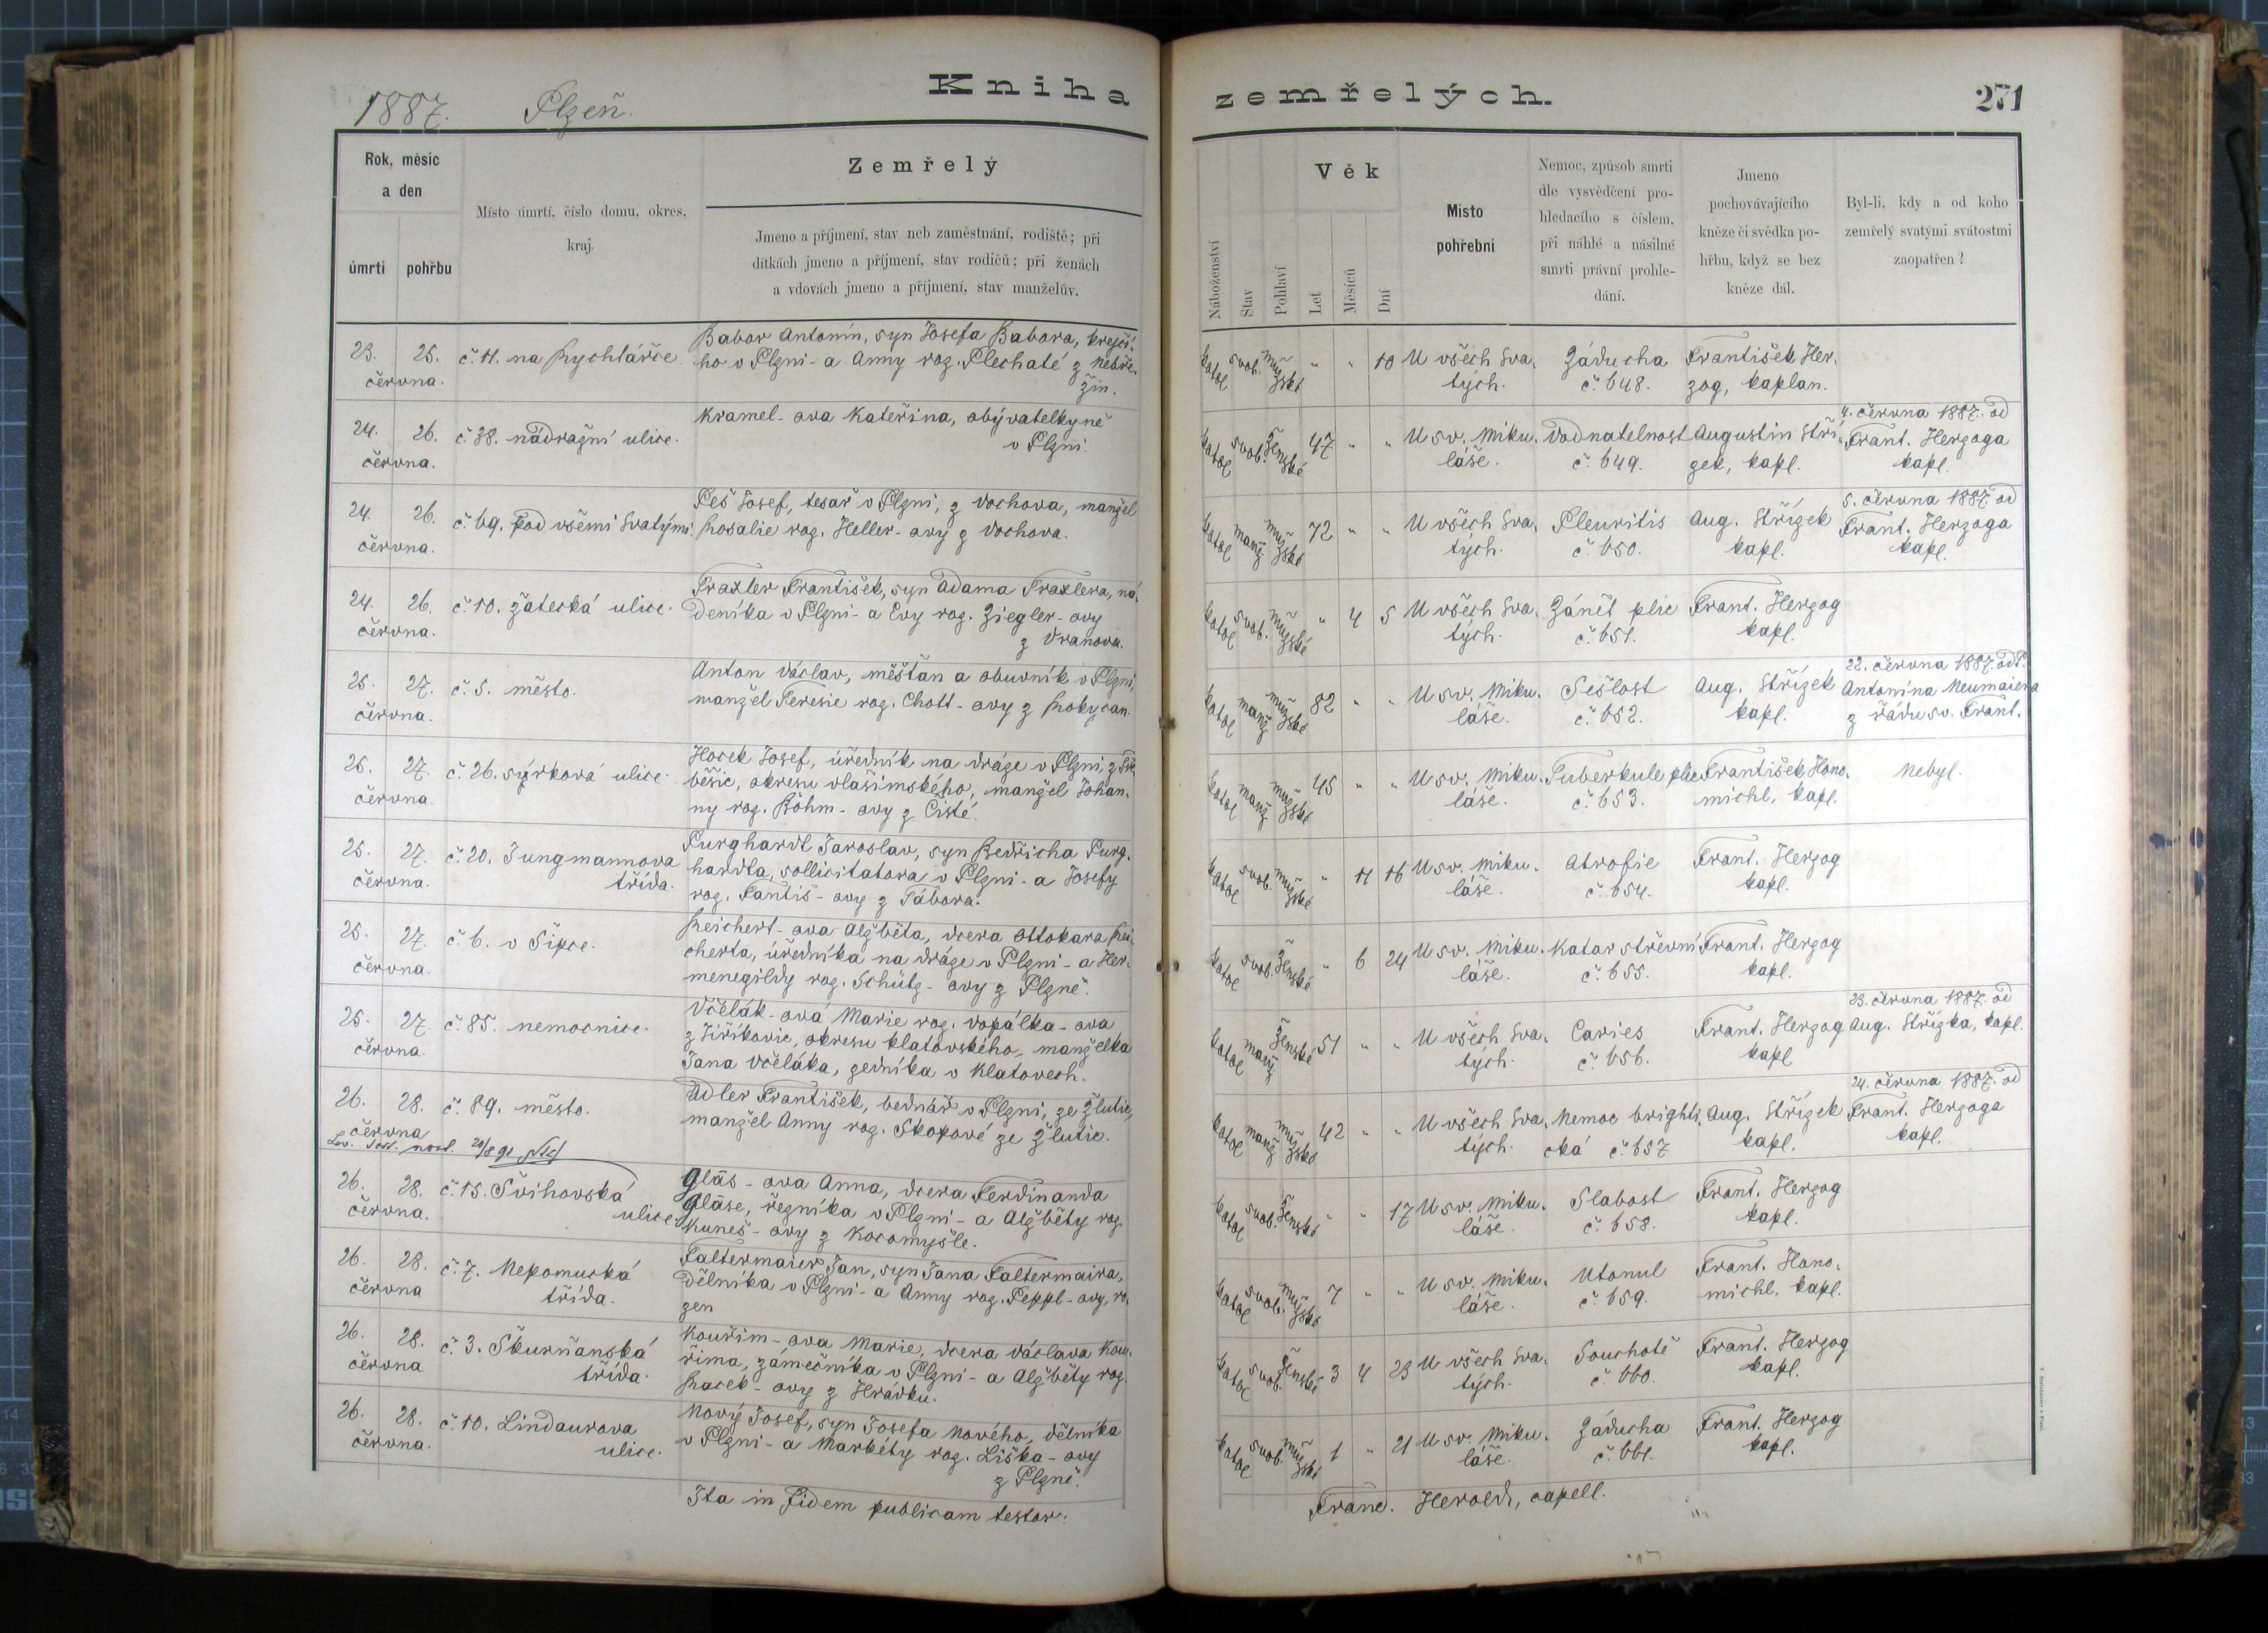 1887. Plzeň.
Kniha
Rok, měsíc
a den
úmrtí
pohřbu
Místo úmrtí, číslo domu, okres,
kraj.
Zemřelý
Jmeno a příjmení, stav neb zaměstnání, rodiště; při
dítkách jmeno a příjmení, stav rodičů; při ženách
a vdovách jmeno a příjmení, stav manželův.
23. 25. č. 11. na Rychtářce.
června.
Babor Antonín, syn Josefa Babora, krejčí-
ho v Plzni - a Anny roz. Plechaté z Nebře-
žin.
24. 26. č. 38. nádražní ulice.
června.
Kramel - ova Kateřina, obývatelkyně
v Plzni.
24. 26. č. 69. pod všemi Svatými.
června.
Peš Josef, tesař v Plzni, z Vochova, manžel
Rosalie roz. Heller - ovy z Vochova.
24. 26. č. 10. žatecká ulice.
června.
Traxler František, syn Adama Traxlera, ná-
deníka v Plzni - a Evy roz. Ziegler - ovy
z Vranova.
25. 27. č. 5. město.
června.
Anton Václav, měšťan a obuvník v Plzni,
manžel Teresie roz. Chott - ovy z Rokycan.
25. 27. č. 26. sýrková ulice.
června.
Hocek Josef, úředník na dráze v Plzni, z
běšic, okresu vlašimského, manžel Johan-
ny roz. Böhm - ovy z Čisté.
25. 27. č. 20. Jungmannova
června. třída.
Purghardt Jaroslav, syn Bedřicha Purg-
hardta, sollicitatora v Plzni - a Josefy
roz. Fantiš - ovy z Tábora.
25. 27. č. 6. v Šipce.
června.
Reichert - ova Alžběta, dcera Ottokara Rei-
cherta, úředníka na dráze v Plzni - a Her-
menegildy roz. Schütz - ovy z Plzně.
25. 27. č. 85. nemocnice.
června.
Včelák - ová Marie roz. Vopálka - ova
z Jiříkovic, okresu klatovského, manželka
Jana Včeláka, zedníka v Klatovech.
26. 28. č. 89. město.
června
Adler František, bednář v Plzni, ze Žlutic,
manžel Anny roz. Skopové ze Žlutic.
20/8 91
26. 28. č. 15. Švihovská
června. ulice.
Gläs - ova Anna, dcera Ferdinanda
Gläse, řezníka v Plzni - a Alžběty roz.
Kuneš - ovy z Kocomyšle.
26. 28. č. 7. Nepomucká
června třída.
Faltermaier Jan, syn Jana Faltermaira,
dělníka v Plzni - a Anny roz. Peppl - ovy, ro-
zen
26. 28. č. 3. Škurňanská
června třída.
Kouřim - ova Marie, dcera Václava Kou-
řima, zámečníka v Plzni - a Alžběty roz.
Racek - ovy z Hrádku.
26. 28. č. 10. Lindaurova
června. ulice.
Nový Josef, syn Josefa Nového, dělníka
v Plzni - a Markéty roz. Liška - ovy
z Plzně.
Ita in fidem publicam testor:
zemřelých.
271
Náboženství
Stav
Pohlaví
Věk
Let
Měsíců
Dní
Místo
pohřební
Nemoc, způsob smrti
dle vysvědčení pro-
hledacího s číslem,
při náhlé a násilné
smrti právní prohle-
dání.
Jmeno
pochovávajícího
kněze či svědka po-
hřbu, když se bez
kněze dál.
Byl-li, kdy a od koho
zemřelý svatými svátostmi
zaopatřen?
katol svob. mužské " " 10 U všech Sva- Záducha František Her-
tých. č. 648. zog, kaplan.
katol svob. ženské 47 " " U sv. Miku- Vodnatelnost Augustin Stří-
láše. č. 649. zek, kapl.
4. června 1887. od
Frant. Herzoga
kapl.
katol manž mužské 72 " " U všech Sva- Pleuritis Aug. Střízek
tých. č. 650. kapl.
5. června 1887. od
Frant. Herzoga
kapl.
katol svob. mužské " 4 5 U všech Sva- Zánět plic Frant. Herzog
tých. č. 651. kapl.
katol manž mužské 82 " " U sv. Miku- Sešlost Aug. Střízek
láše. č. 652. kapl.
22. června 1887. od P.
Antonína Neumaiera
z řádu sv. Frant.
katol manž mužské 45 " " U sv. Miku- Tuberkule plic František Hono- Nebyl.
láše. č. 653. michl, kapl.
katol svob. mužské " 11 16 U sv. Miku- Atrofie Frant. Herzog
láše. č. 654. kapl.
katol svob. ženské " 6 24 U sv. Miku- Katar střevní Frant. Herzog
láše. č. 655. kapl.
katol manž ženské 51 " " U všech Sva- Caries Frant. Herzog
tých. č. 656. kapl
23. června 1887. od
Aug. Střízka, kapl.
katol manž mužské 42 " " U všech Sva- Nemoc brighti- Aug. Střízek
tých. cká č. 657 kapl.
24. června 1887. od
Frant. Herzoga
kapl.
katol svob. ženské " " 17 U sv. Miku- Slabost Frant. Herzog
láše. č. 658. kapl.
katol svob. mužské 7 " " U sv. Miku- Utonul Frant. Hono-
láše. č. 659. michl, kapl.
katol svob. ženské 3 4 23 U všech Sva- Souchotě Frant. Herzog
tých. č. 660. kapl.
katol svob. mužské 1 " 21 U sv. Miku- Záducha Frant. Herzog
láše. č. 661. kapl.
Franc. Herold, capell.